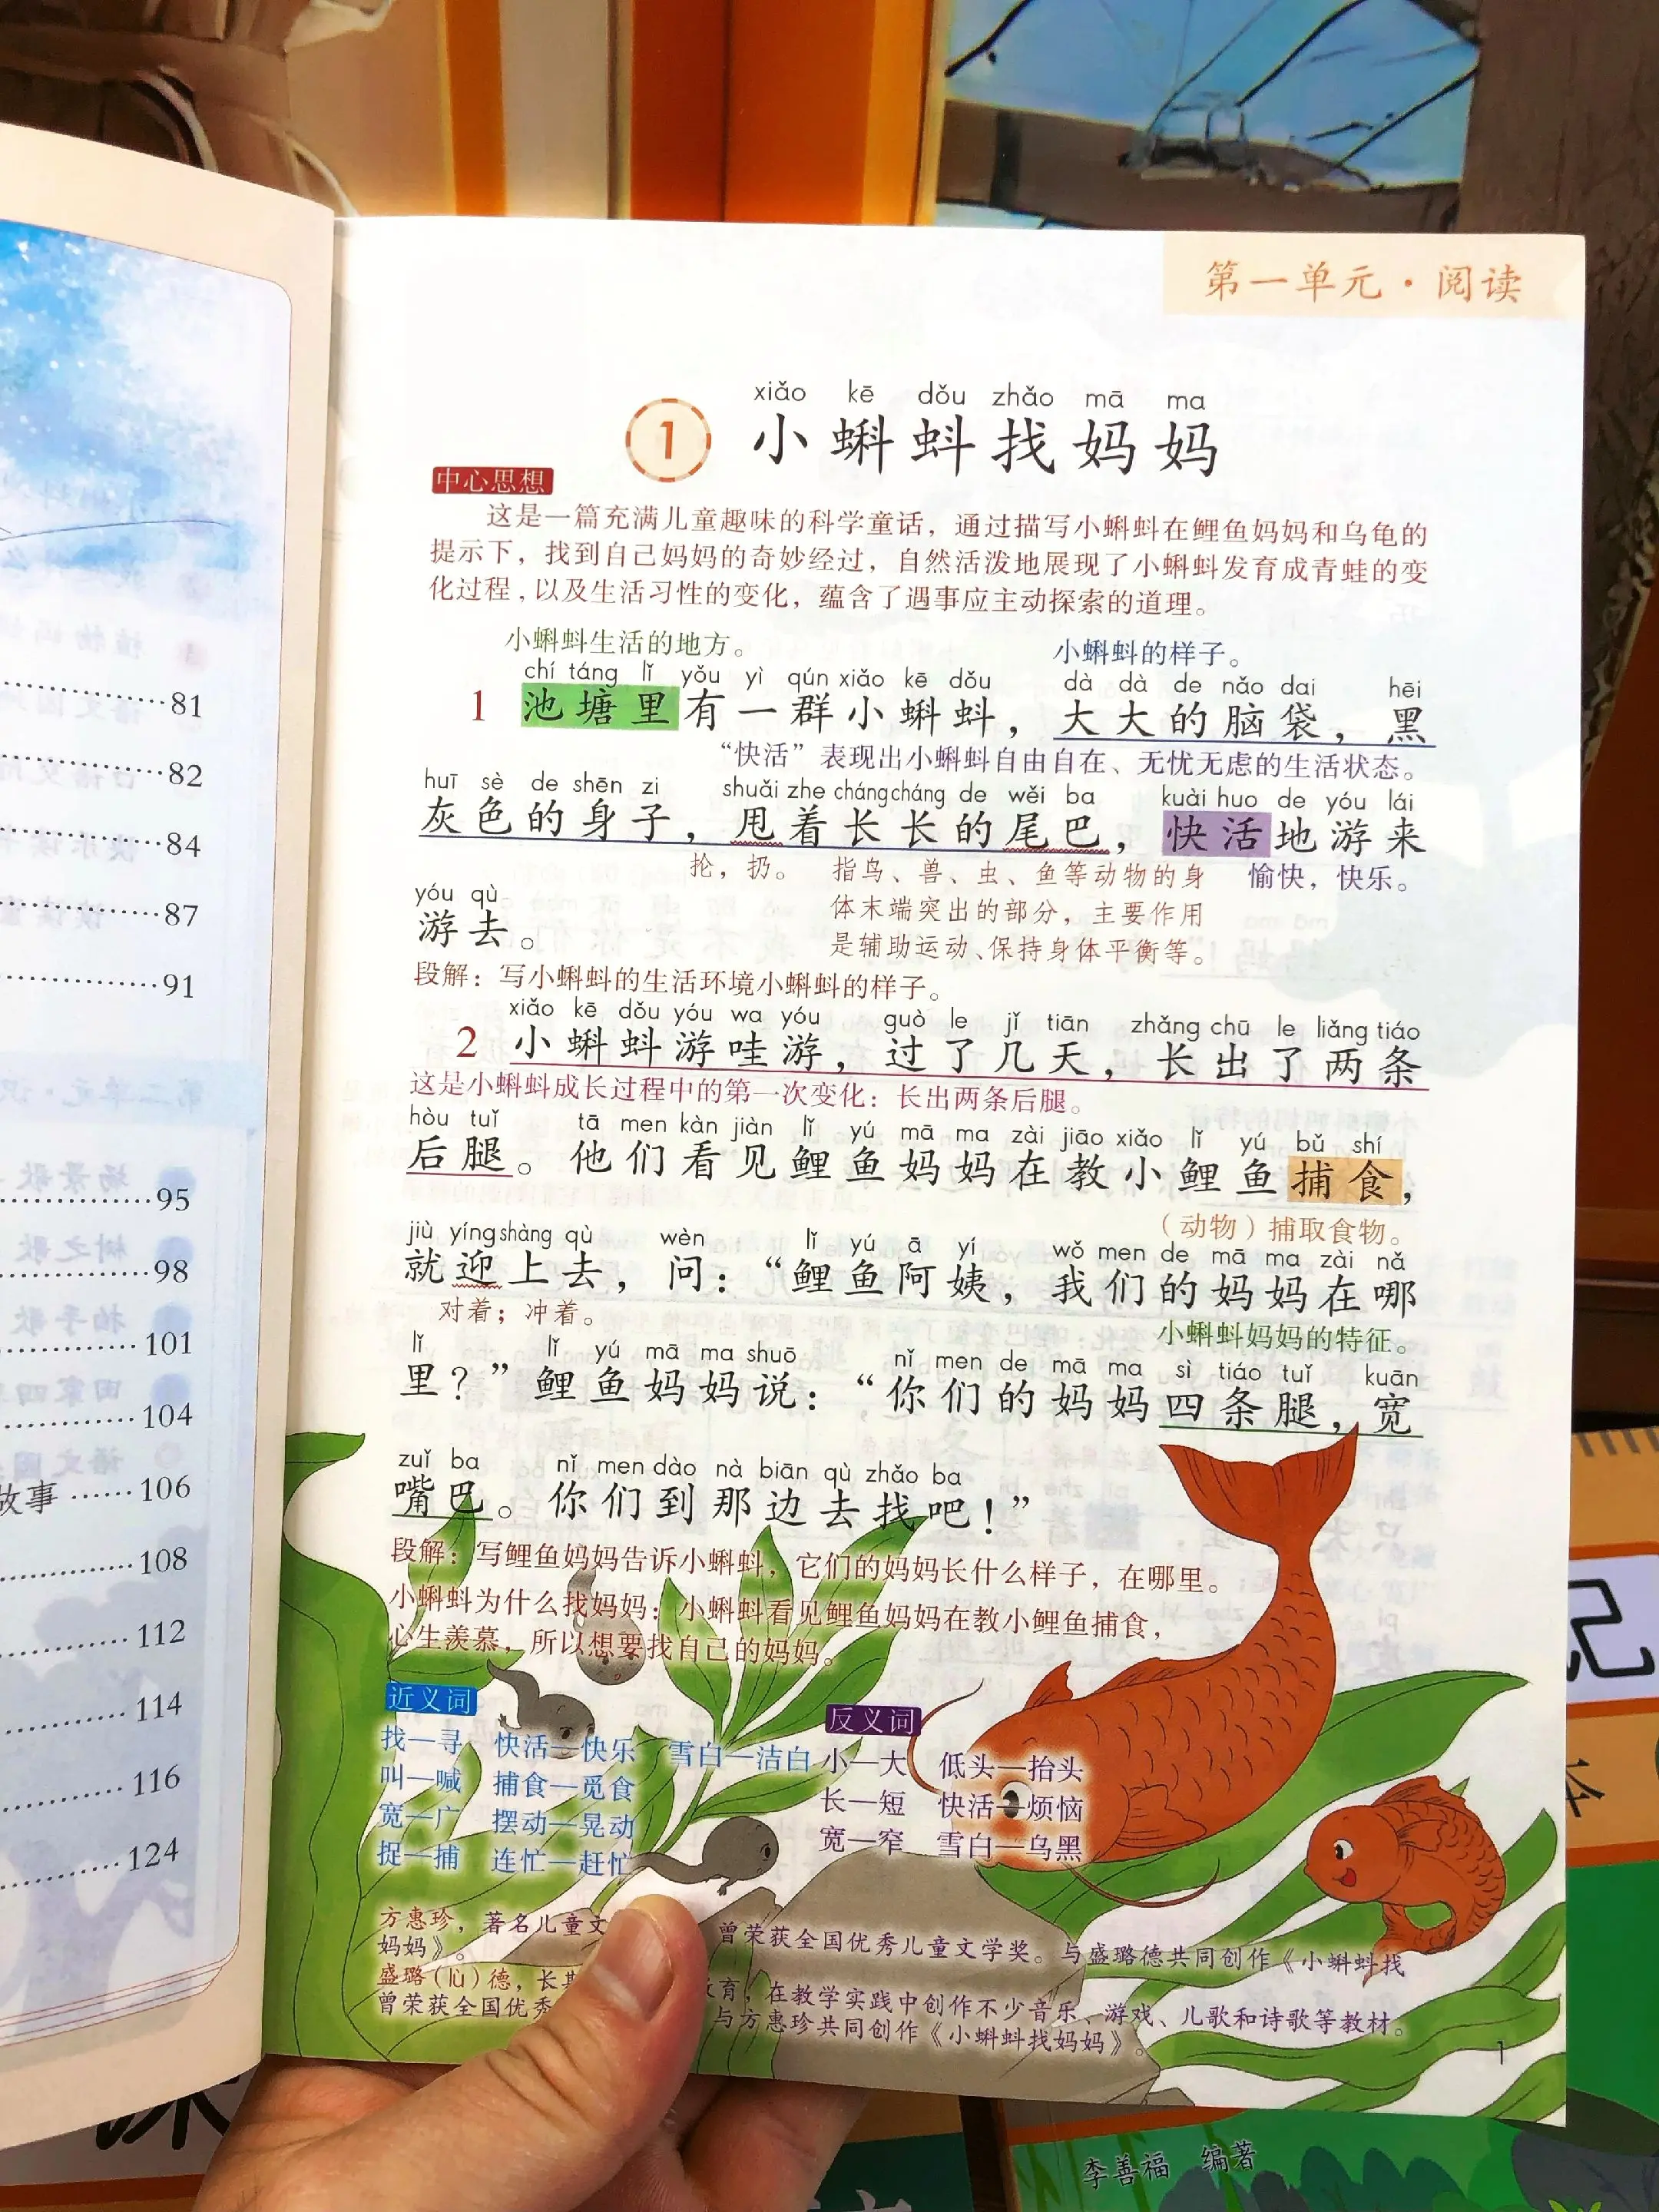 第一单元·阅读
xiǎo kē dǒu zhǎo mā ma
1 小蝌蚪找妈妈
中心思想
这是一篇充满儿童趣味的科学童话，通过描写小蝌蚪在鲤鱼妈妈和乌龟的
提示下，找到自己妈妈的奇妙经过，自然活泼地展现了小蝌蚪发育成青蛙的变
化过程，以及生活习性的变化，蕴含了遇事应主动探索的道理。
小蝌蚪生活的地方。 小蝌蚪的样子。
chí táng lǐ yǒu yì qún xiǎo kē dǒu dà dà de nǎo dai hēi
1 池塘里有一群小蝌蚪，大大的脑袋，黑
“快活”表现出小蝌蚪自由自在、无忧无虑的生活状态。
huī sè de shēn zi shuǎi zhe cháng cháng de wěi ba kuài huo de yóu lái
灰色的身子，甩着长长的尾巴，快活地游来
抡，扔。 指鸟、兽、虫、鱼等动物的身 愉快，快乐。
yóu qù
体末端突出的部分，主要作用
游去。
是辅助运动、保持身体平衡等。
段解：写小蝌蚪的生活环境小蝌蚪的样子。
xiǎo kē dǒu yóu wa yóu guò le jǐ tiān zhǎng chū le liǎng tiáo
2 小蝌蚪游哇游，过了几天，长出了两条
这是小蝌蚪成长过程中的第一次变化：长出两条后腿。
hòu tuǐ tā men kàn jiàn lǐ yú mā ma zài jiāo xiǎo lǐ yú bǔ shí
后腿。他们看见鲤鱼妈妈在教小鲤鱼捕食，
（动物）捕取食物。
jiù yíng shàng qù wèn lǐ yú ā yí wǒ men de mā ma zài nǎ
就迎上去，问：“鲤鱼阿姨，我们的妈妈在哪
对着；冲着。 小蝌蚪妈妈的特征。
lǐ lǐ yú mā ma shuō nǐ men de mā ma sì tiáo tuǐ kuān
里？”鲤鱼妈妈说：“你们的妈妈四条腿，宽
zuǐ ba nǐ men dào nà biān qù zhǎo ba
嘴巴。你们到那边去找吧！”
段解：写鲤鱼妈妈告诉小蝌蚪，它们的妈妈长什么样子，在哪里。
小蝌蚪为什么找妈妈：小蝌蚪看见鲤鱼妈妈在教小鲤鱼捕食，
心生羡慕，所以想要找自己的妈妈。
近义词
找—寻 快活—快乐 雪白—洁白
叫—喊 捕食—觅食
宽—广 摆动—晃动
捉—捕 连忙—赶忙
反义词
小—大 低头—抬头
长—短 快活—烦恼
宽—窄 雪白—乌黑
方惠珍，著名儿童文 曾荣获全国优秀儿童文学奖。与盛璐德共同创作《小蝌蚪找
妈妈》。
盛璐（lù）德，长 教育，在教学实践中创作不少音乐、游戏、儿歌和诗歌等教材。
曾荣获全国优秀 与方惠珍共同创作《小蝌蚪找妈妈》。
1
81
82
84
87
91
95
98
101
104
故事 106
108
112
114
116
124
记
李善福 编著